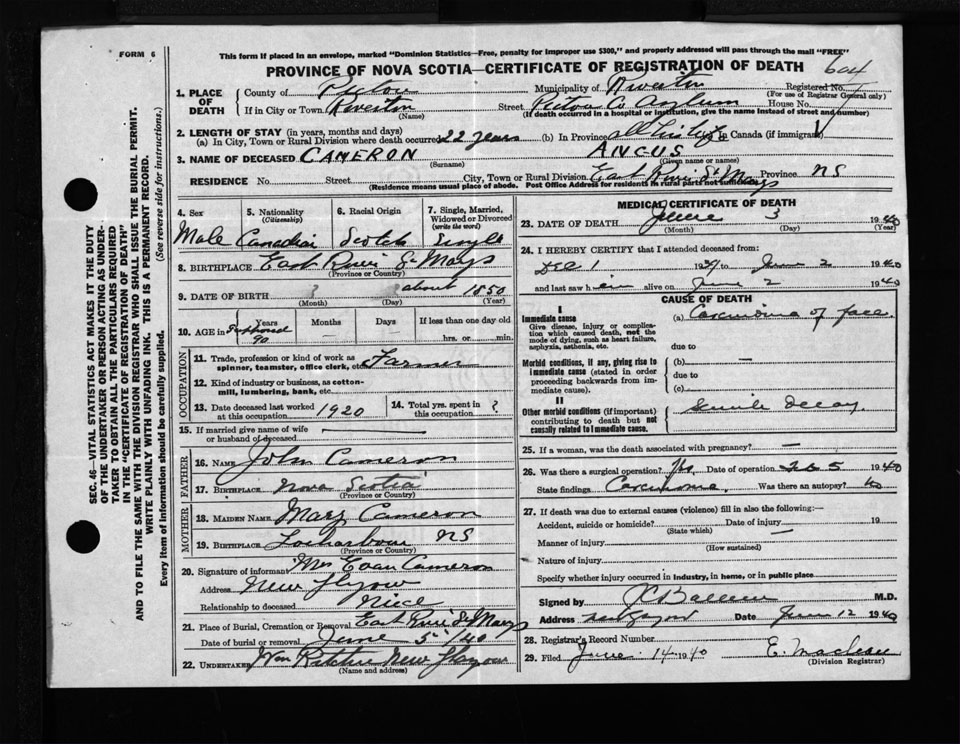 FORM 6
This form if placed in an envelope, marked "Dominion Statistics—Free, penalty for improper use $300," and properly addressed will pass through the mail "FREE"
PROVINCE OF NOVA SCOTIA—CERTIFICATE OF REGISTRATION OF DEATH 604
1. PLACE OF DEATH County of Pictou Municipality of Riverton Registered No.
(For use of Registrar General only)
If in City or Town Riverton Street Pictou Co Asylum House No.
(Name) (If death occurred in a hospital or institution, give the name instead of street and number)
2. LENGTH OF STAY (in years, months and days)
(a) In City, Town or Rural Division where death occurred 22 years (b) In Province all his life In Canada (if immigrant)
3. NAME OF DECEASED CAMERON ANGUS
(Surname) (Given name or names)
RESIDENCE No. Street City, Town or Rural Division East River St Marys Province NS
(Residence means usual place of abode. Post Office Address for residents in rural parts not sufficient)
4. Sex 5. Nationality (Citizenship) 6. Racial Origin 7. Single, Married, Widowed or Divorced (write the word)
Male Canadian Scotch Single
8. BIRTHPLACE East River St Marys
(Province or Country)
9. DATE OF BIRTH ? ? about 1850
(Month) (Day) (Year)
10. AGE in Years Months Days If less than one day old
90 hrs. or min.
OCCUPATION
11. Trade, profession or kind of work as spinner, teamster, office clerk, etc. Farmer
12. Kind of industry or business, as cotton-mill, lumbering, bank, etc.
13. Date deceased last worked at this occupation 1920 14. Total yrs. spent in this occupation ?
15. If married give name of wife or husband of deceased
FATHER
16. NAME John Cameron
17. BIRTHPLACE Nova Scotia
(Province or Country)
MOTHER
18. MAIDEN NAME Mary Cameron
19. BIRTHPLACE NS
(Province or Country)
20. Signature of informant Mrs Cameron
Address New Glasgow
Relationship to deceased Niece
21. Place of Burial, Cremation or Removal East River St Marys
Date of burial or removal June 5 /40
22. UNDERTAKER Wm Ritchie New Glasgow
(Name and address)
MEDICAL CERTIFICATE OF DEATH
23. DATE OF DEATH June 3 1940
(Month) (Day) (Year)
24. I HEREBY CERTIFY that I attended deceased from:
Dec 1 to June 2 1940
and last saw him alive on June 2 1940
CAUSE OF DEATH
Immediate cause (a) Carcinoma of face
Give disease, injury or complication which caused death, not the mode of dying, such as heart failure, asphyxia, asthenia, etc.
due to
Morbid conditions, if any, giving rise to immediate cause (stated in order proceeding backwards from immediate cause). (b) —
due to
(c)
II
Other morbid conditions (if important) contributing to death but not causally related to immediate cause. Senile decay
25. If a woman, was the death associated with pregnancy? —
26. Was there a surgical operation? Yes Date of operation Feb 5 1940
State findings Carcinoma Was there an autopsy? No
27. If death was due to external causes (violence) fill in also the following:—
Accident, suicide or homicide? Date of injury — 19
(State which)
Manner of injury
(How sustained)
Nature of injury
Specify whether injury occurred in industry, in home, or in public place
Signed by M.D.
Address New Glasgow Date June 12 1940
28. Registrar's Record Number
29. Filed June 14 1940 E. Maclean
(Division Registrar)
SEC. 46—VITAL STATISTICS ACT MAKES IT THE DUTY
OF THE UNDERTAKER OR PERSON ACTING AS UNDER-
TAKER TO OBTAIN ALL THE PARTICULARS REQUIRED
IN THE "CERTIFICATE OF REGISTRATION OF DEATH"
AND TO FILE THE SAME WITH THE DIVISION REGISTRAR WHO SHALL ISSUE THE BURIAL PERMIT.
WRITE PLAINLY WITH UNFADING INK. THIS IS A PERMANENT RECORD.
Every item of information should be carefully supplied. (See reverse side for instructions.)